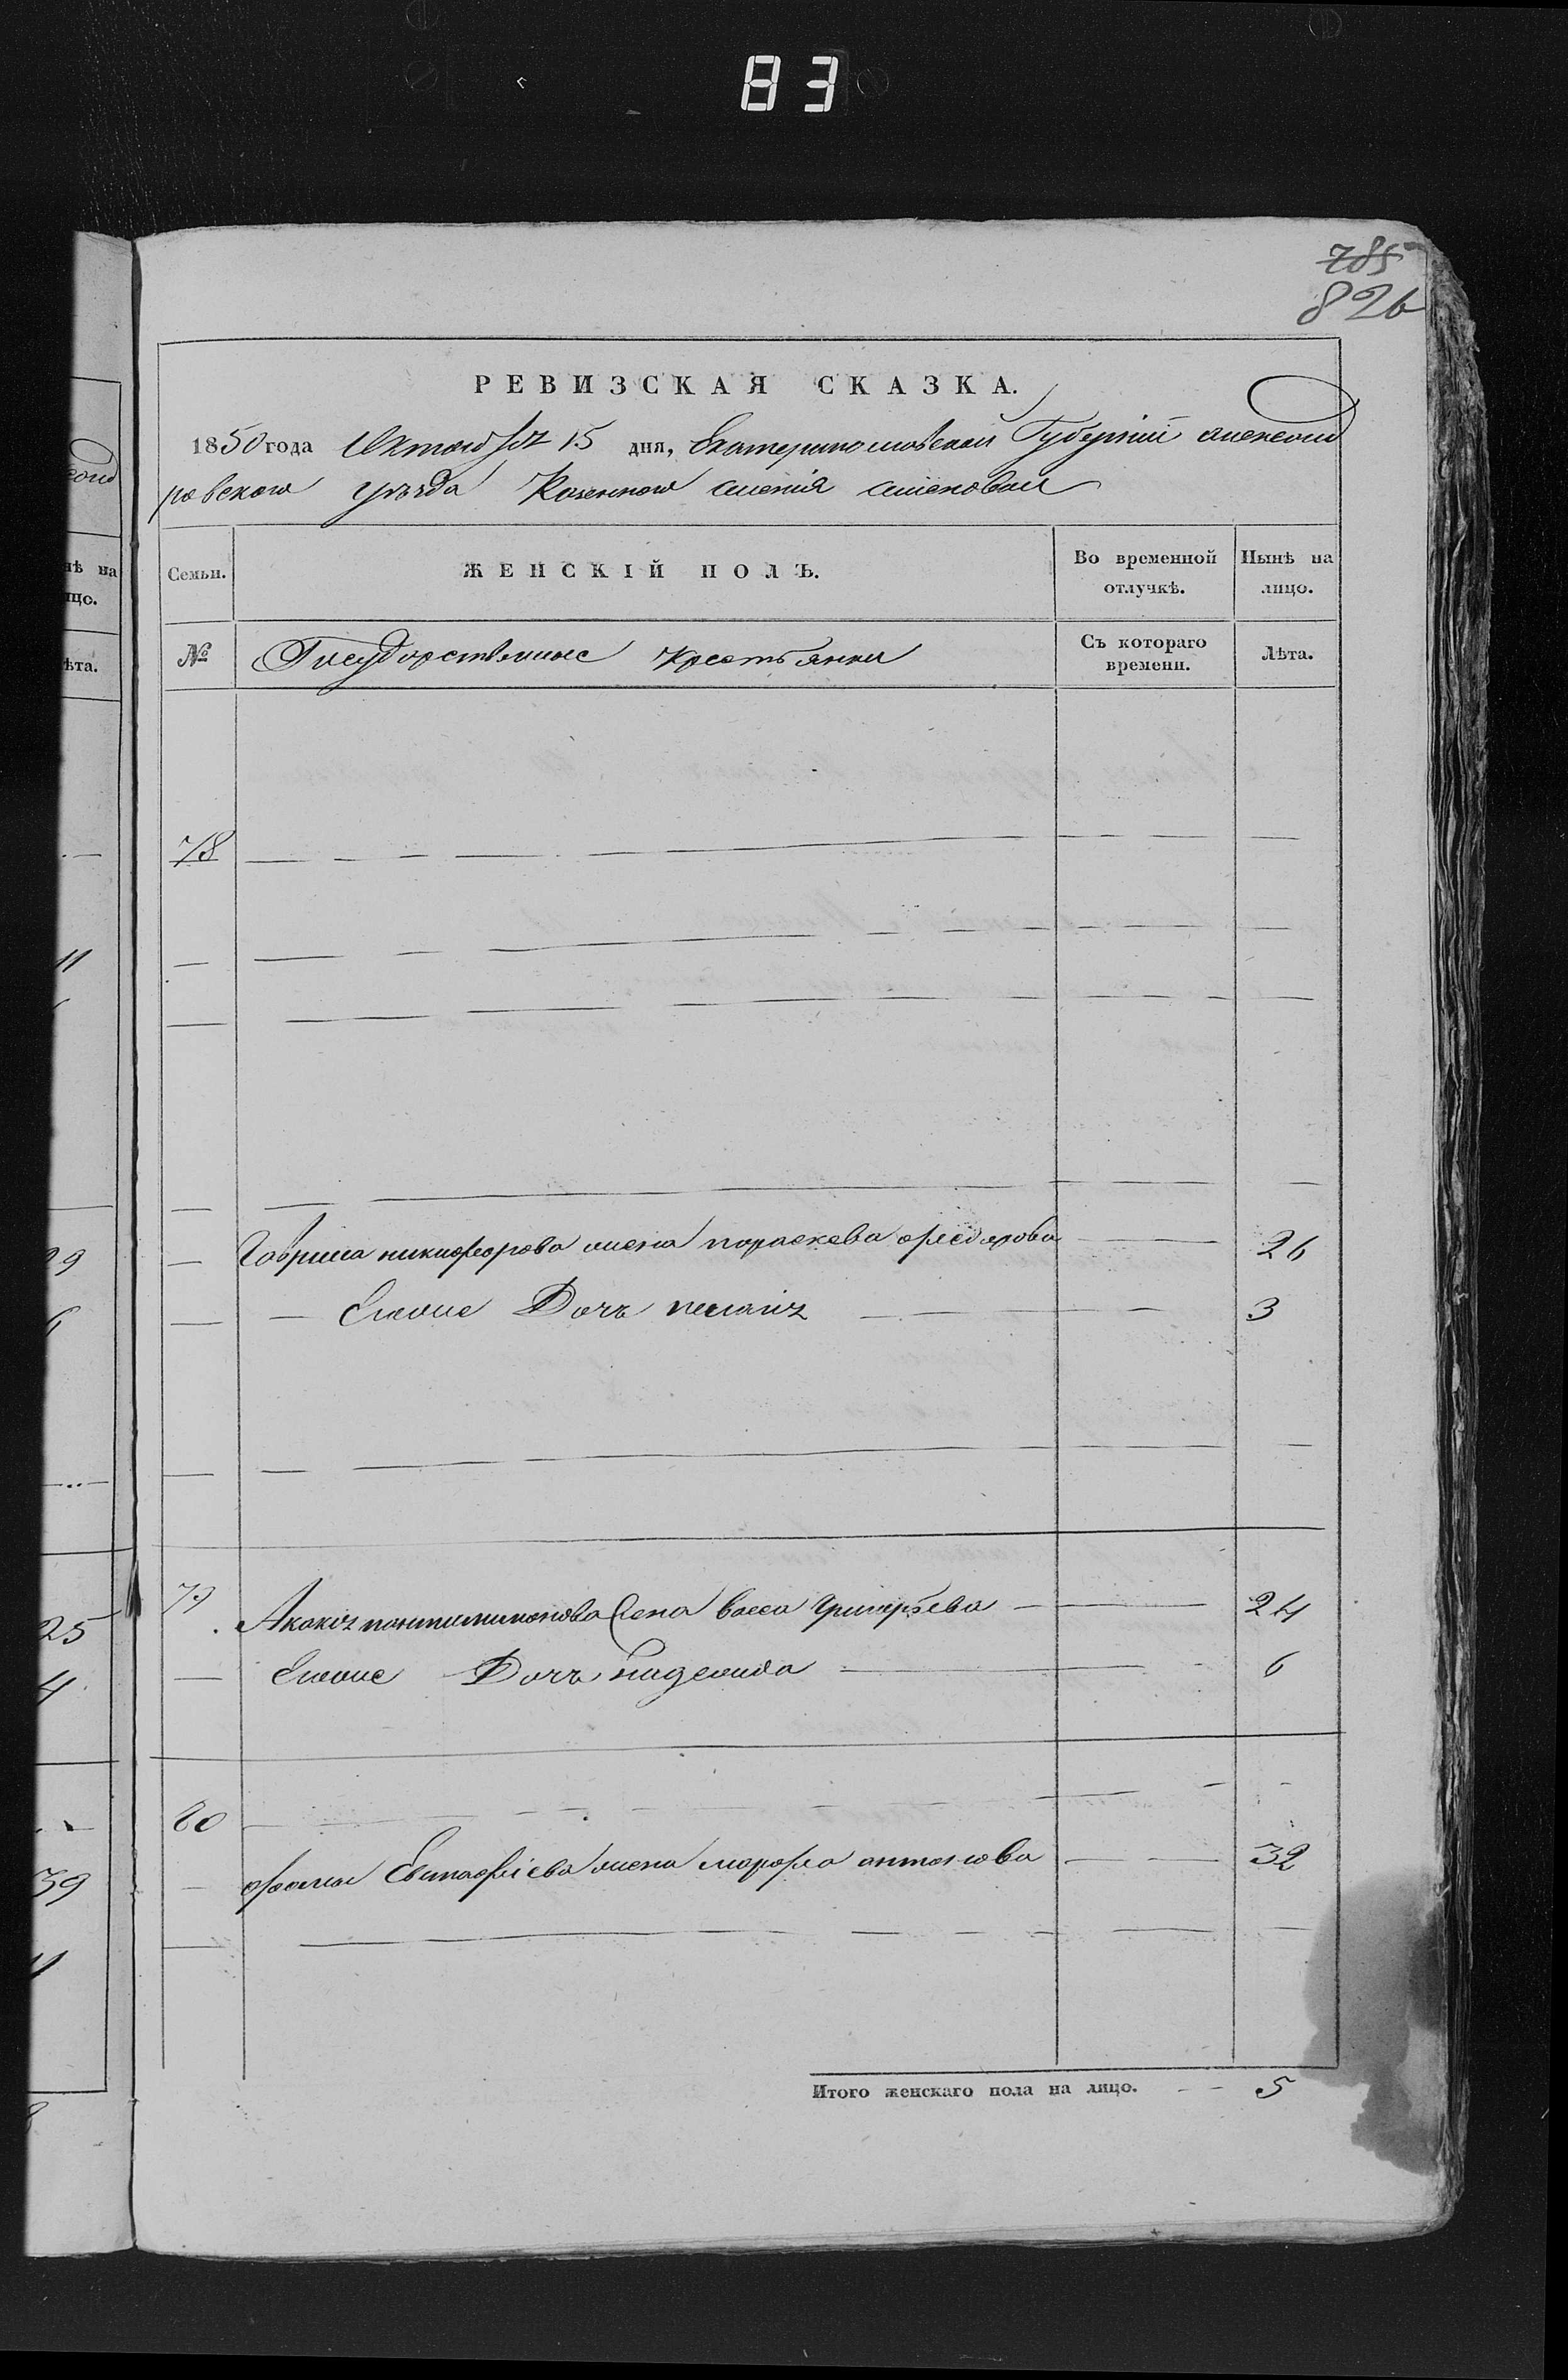 83
785
826
РЕВИЗСКАЯ СКАЗКА.
1850 года Октября 15 дня, Екатеринославской Губерній Александ
ровского уѣзда Казенного
Семьи. ЖЕНСКІЙ ПОЛЪ. Во временной отлучкѣ. Нынѣ на лицо.
№ Государственные крестьянки Съ котораго времени. Лѣта.
78
Гаврила никифорова жена параскева федорова 26
Егоже Дочь пелагія 3
79 Акакія пантилимонова жена васса григорьева 24
Егоже Дочь надежда 6
80
фомы Евстафіева жена марфа антонова 32
Итого женскаго пола на лицо. 5